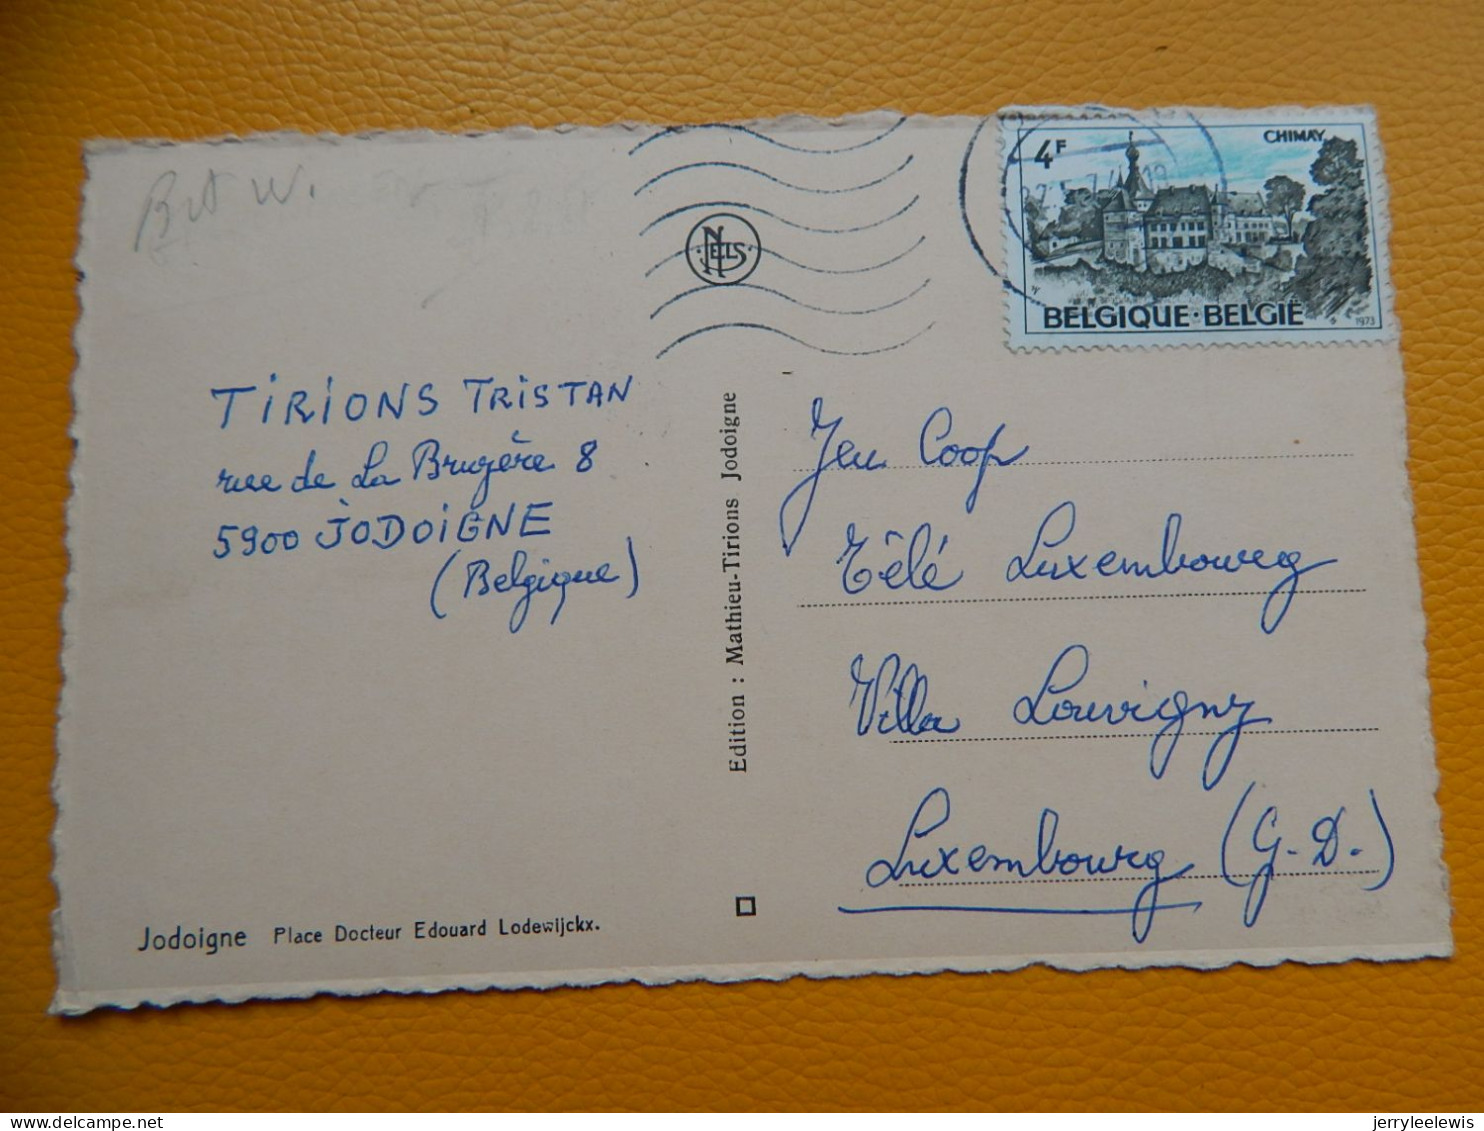 4F
CHIMAY
BELGIQUE·BELGIË
1973
NELS
TIRIONS TRISTAN
rue de La Bruyère 8
5900 JODOIGNE
(Belgique)
Edition : Mathieu-Tirions Jodoigne
Jeu Coop
Télé Luxembourg
Villa Louvigny
Luxembourg (G.D.)
Jodoigne Place Docteur Edouard Lodewijckx.
jerryleelewis